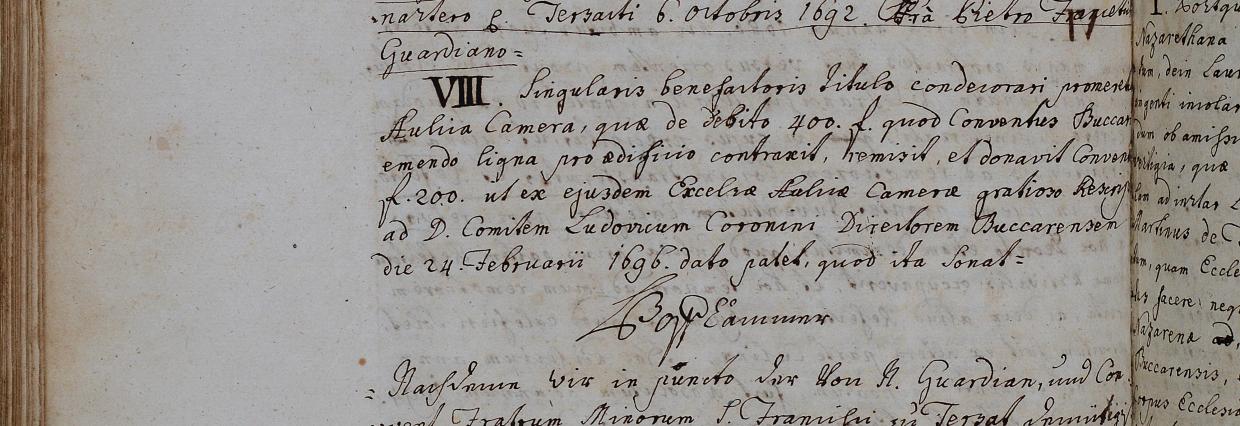 nastero S. Tersacti 6. Octobris 1692. Frà Pietro Francetich
Guardiano=
VIII. Singularis benefactoris titulo condecorari promeret
Aulica Camera, quæ de debito 400. f. quod Conventus Buccar
emendo ligna pro ædificio contraxit, remisit, et donavit Conven
f. 200. ut ex ejusdem Excelsæ Aulicæ Cameræ gratioso Rescrip
ad D. Comitem Ludovicum Coronini Directorem Buccarensem
die 24. Februarii 1696. dato patet, quod ita sonat=
Hoff Cammer
= Nachdeme Wir in puncto der Von N. Guardian, und Con
vent Fratrum Minorum S. Francisci zu Tersat
Nazarethana
tum, dein Laur
ingenti
ob amissi
vestigia, quæ
ad instar L
Martinus de
quam Eccle
facere: neq
Nazarenæ ad,
Buccarensis,
corpus Ecclesiæ